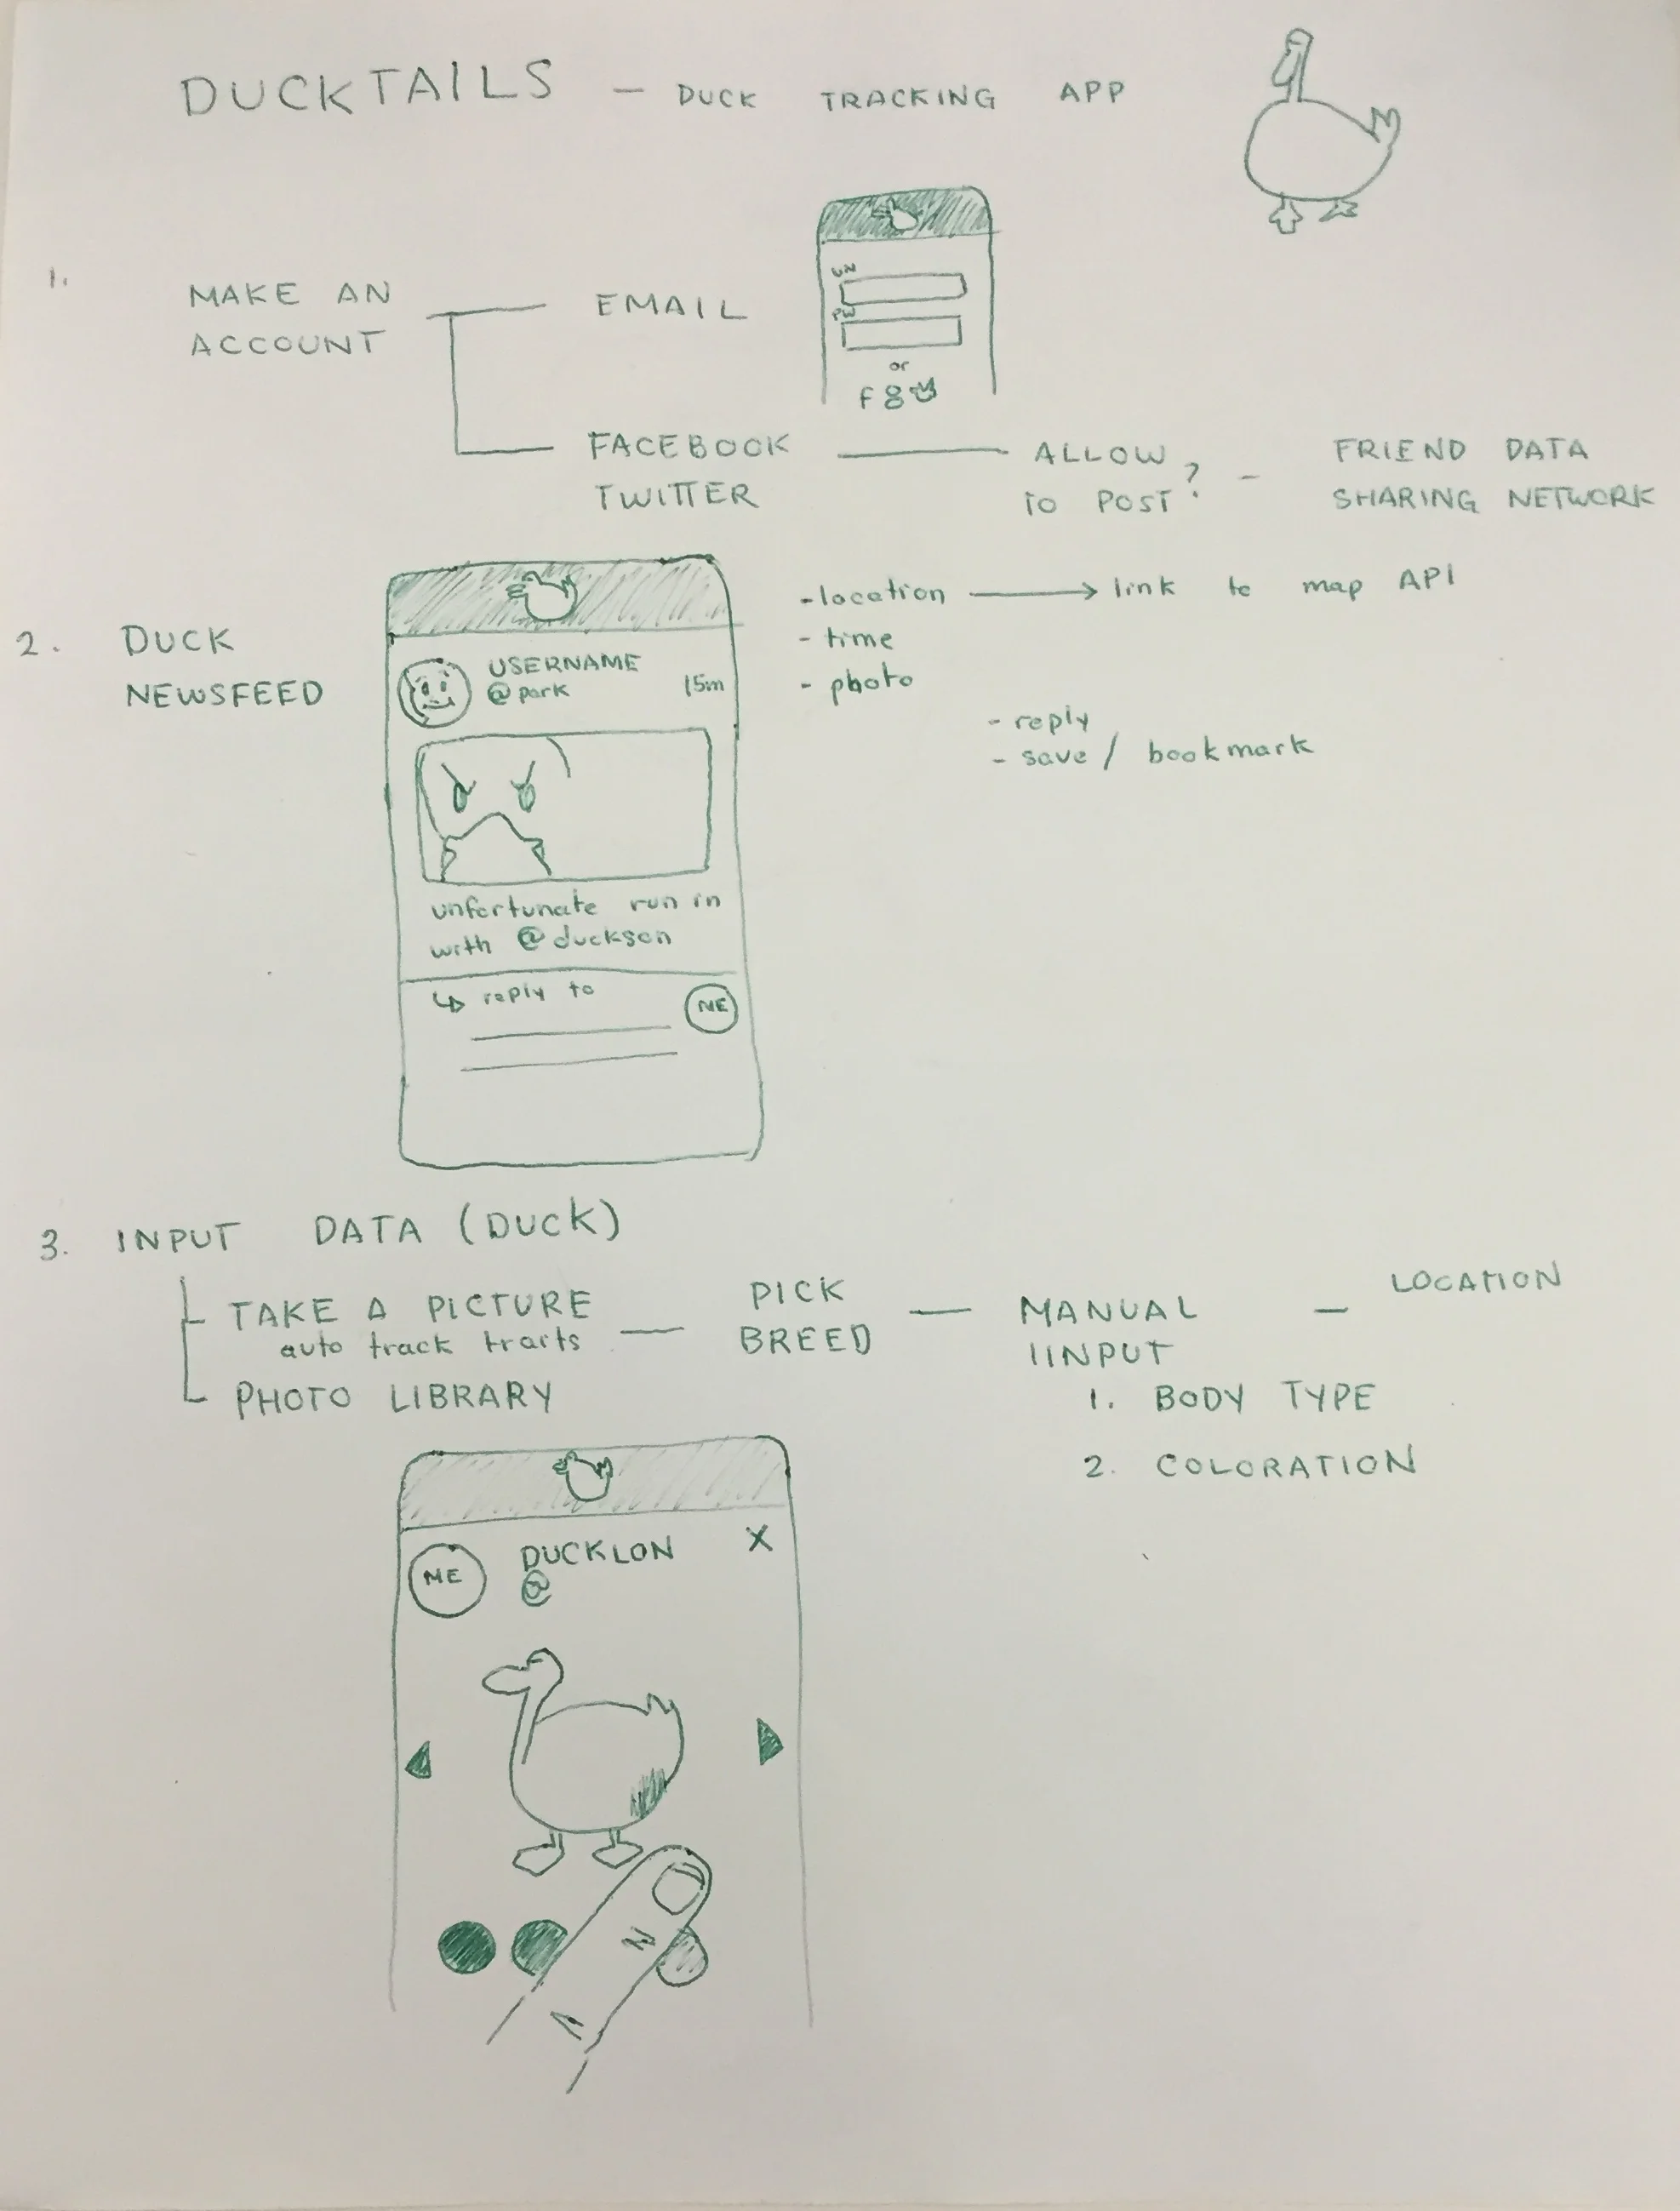 DUCKTAILS — DUCK TRACKING APP
1.
MAKE AN
ACCOUNT
EMAIL
UN
PW
or
f 8
FACEBOOK
TWITTER
ALLOW
TO POST?
- FRIEND DATA
SHARING NETWORK
2. DUCK
NEWSFEED
USERNAME
@park
15m
unfortunate run in
with @duckson
↳ reply to
ME
- location → link to map API
- time
- photo
- reply
- save / bookmark
3. INPUT DATA (DUCK)
TAKE A PICTURE
auto track traits
PHOTO LIBRARY
— PICK
BREED
— MANUAL
IINPUT
1. BODY TYPE
2. COLORATION
— LOCATION
ME
DUCKLON
@
X